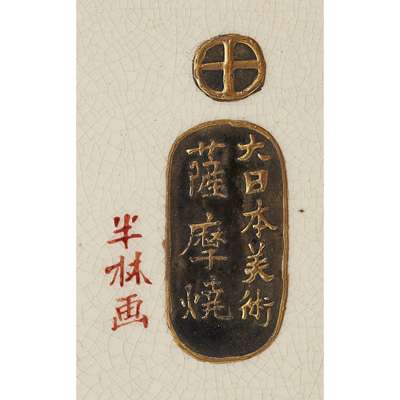 大日本美術
薩摩焼
半林画